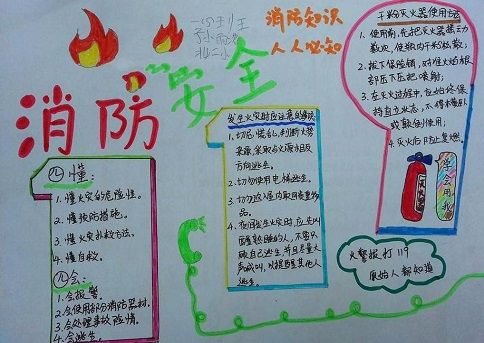 消防安全
消防知识
人人必知
四懂：
1. 懂火灾的危险性。
2. 懂预防措施。
3. 懂火灾扑救方法。
4. 懂自救。
四会：
1. 会报警。
2. 会使用部分消防器材。
3. 会处理事故险情。
4. 会逃生。
发生火灾时应注意的事项
1. 切忌慌乱，判断火势
来源，采取与火源相反
方向逃生。
2. 切勿使用电梯逃生。
3. 切勿返入屋内取用贵重物
品。
4. 夜间发生火灾时，应先叫
醒熟睡的人，不要只
顾自己逃生，并且尽量大
声喊叫，以提醒其他人
逃生。
干粉灭火器使用方法
1. 使用前，先把灭火器摇动
数次，使瓶内干粉松散；
2. 拔下保险销，对准火焰根
部压下压把喷射；
3. 在灭火过程中，应始终保
持直立状态，不得横卧
或颠倒使用；
4. 灭火后防止复燃。
灭火器
学会用我
火警报打119
原始人都知道